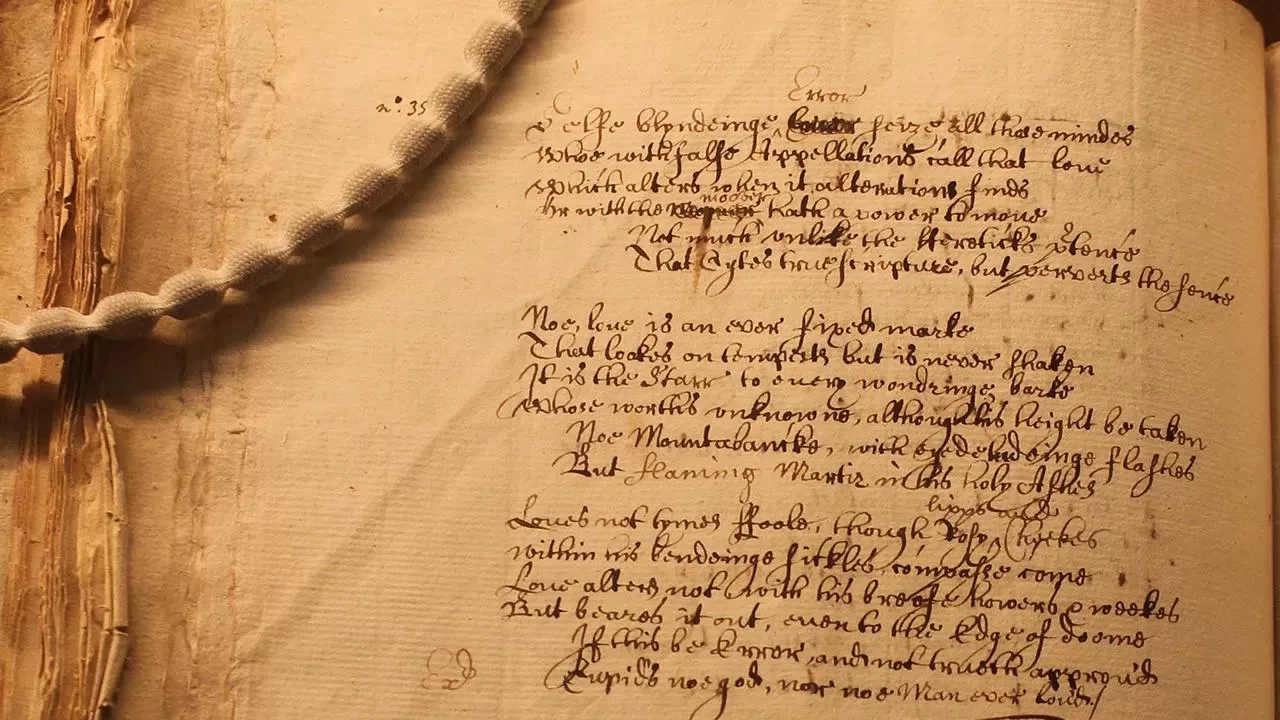 Error
n°. 35
Selfe blyndeinge seize all those mindes
Who with false Appellations call that love
Which alters when it alterations finds
Or with the mover hath a power to move
Not much unlike the Heretickes p̄tence
That Cytes true scripture, but perverts the sence
Noe, love is an ever fixed marke
That lookes on tempests but is never shaken
It is the Starr to every wondringe barke
Whose worths unknowne, although his height be taken
Noe Mountabancke, with eyedeludeinge flashes
But flaming Martir in his holy Ashes
lipps and
Loves not tymes ffoole, though Rosy Cheekes
within his bendeinge sickles, compasse come
Love alters not with his breefe howers & weekes
But beares it out, even to the Edge of doome
If this be Error, and not trueth approv'd
Cupids noe god, nor noe Man ever lov'd